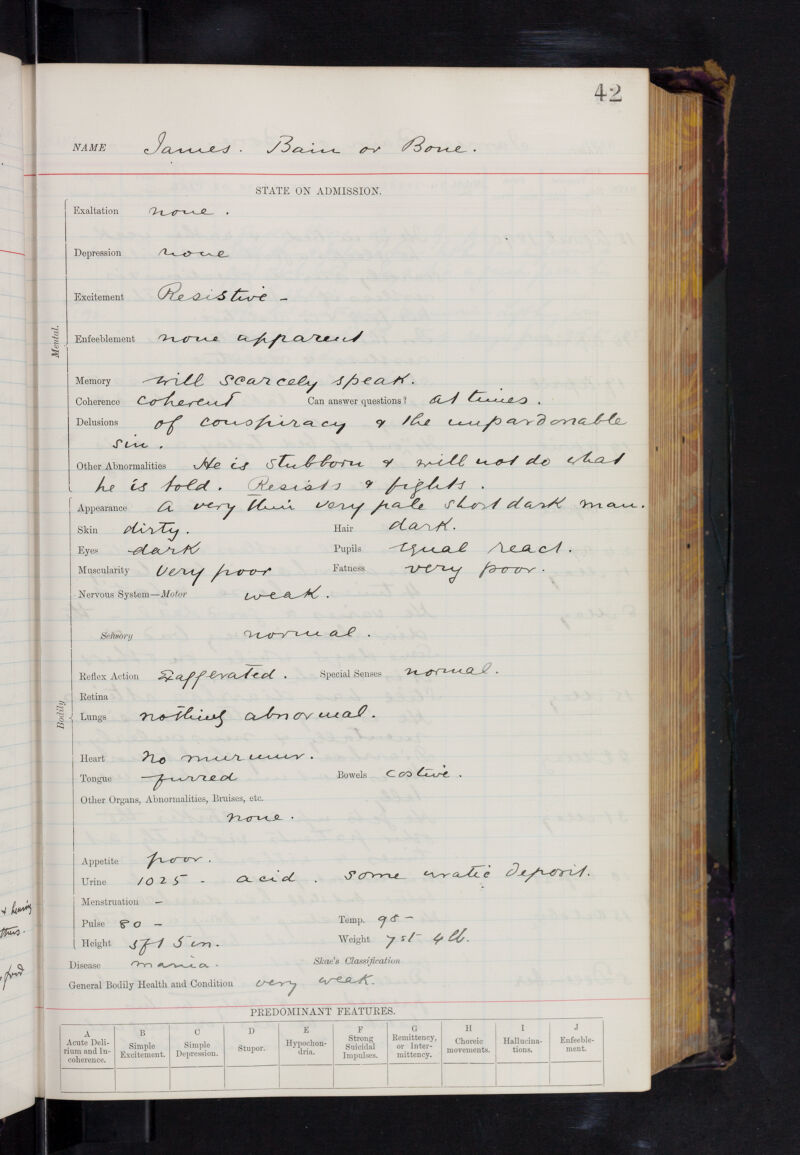 42
NAME James. Bain or Bone.
STATE ON ADMISSION.
Mental.
Exaltation none.
Depression none
Excitement Resistive -
Enfeeblement none apparent
Memory will scarcely speak.
Coherence coherent Can answer questions? at times.
Delusions of conspiracy & the unpardonable
sin.
Other Abnormalities He is stubborn & will not do what
he is told. Resists & fights.
Bodily
Appearance a very thin very pale short dark man.
Skin dirty. Hair dark.
Eyes dark Pupils equal react.
Muscularity very poor Fatness very poor.
Nervous System—Motor weak.
Sensory normal.
Reflex Action Exaggerated. Special Senses normal.
Retina
Lungs nothing abnormal.
Heart no murmur.
Tongue furred Bowels costive.
Other Organs, Abnormalities, Bruises, etc.
none.
Appetite poor.
Urine 1025 - acid. some uratic deposit.
Menstruation -
Pulse 80 - Temp. 98 -
Height 5ft 5in. Weight 7st 4lb.
Disease mania. Skae's Classification
General Bodily Health and Condition very weak.
PREDOMINANT FEATURES.
A B C D E F G H I J
Acute Delirium and Incoherence. Simple Excitement. Simple Depression. Stupor. Hypochondria. Strong Suicidal Impulses. Remittency, or Intermittency. Choreic movements. Hallucinations. Enfeeblement.